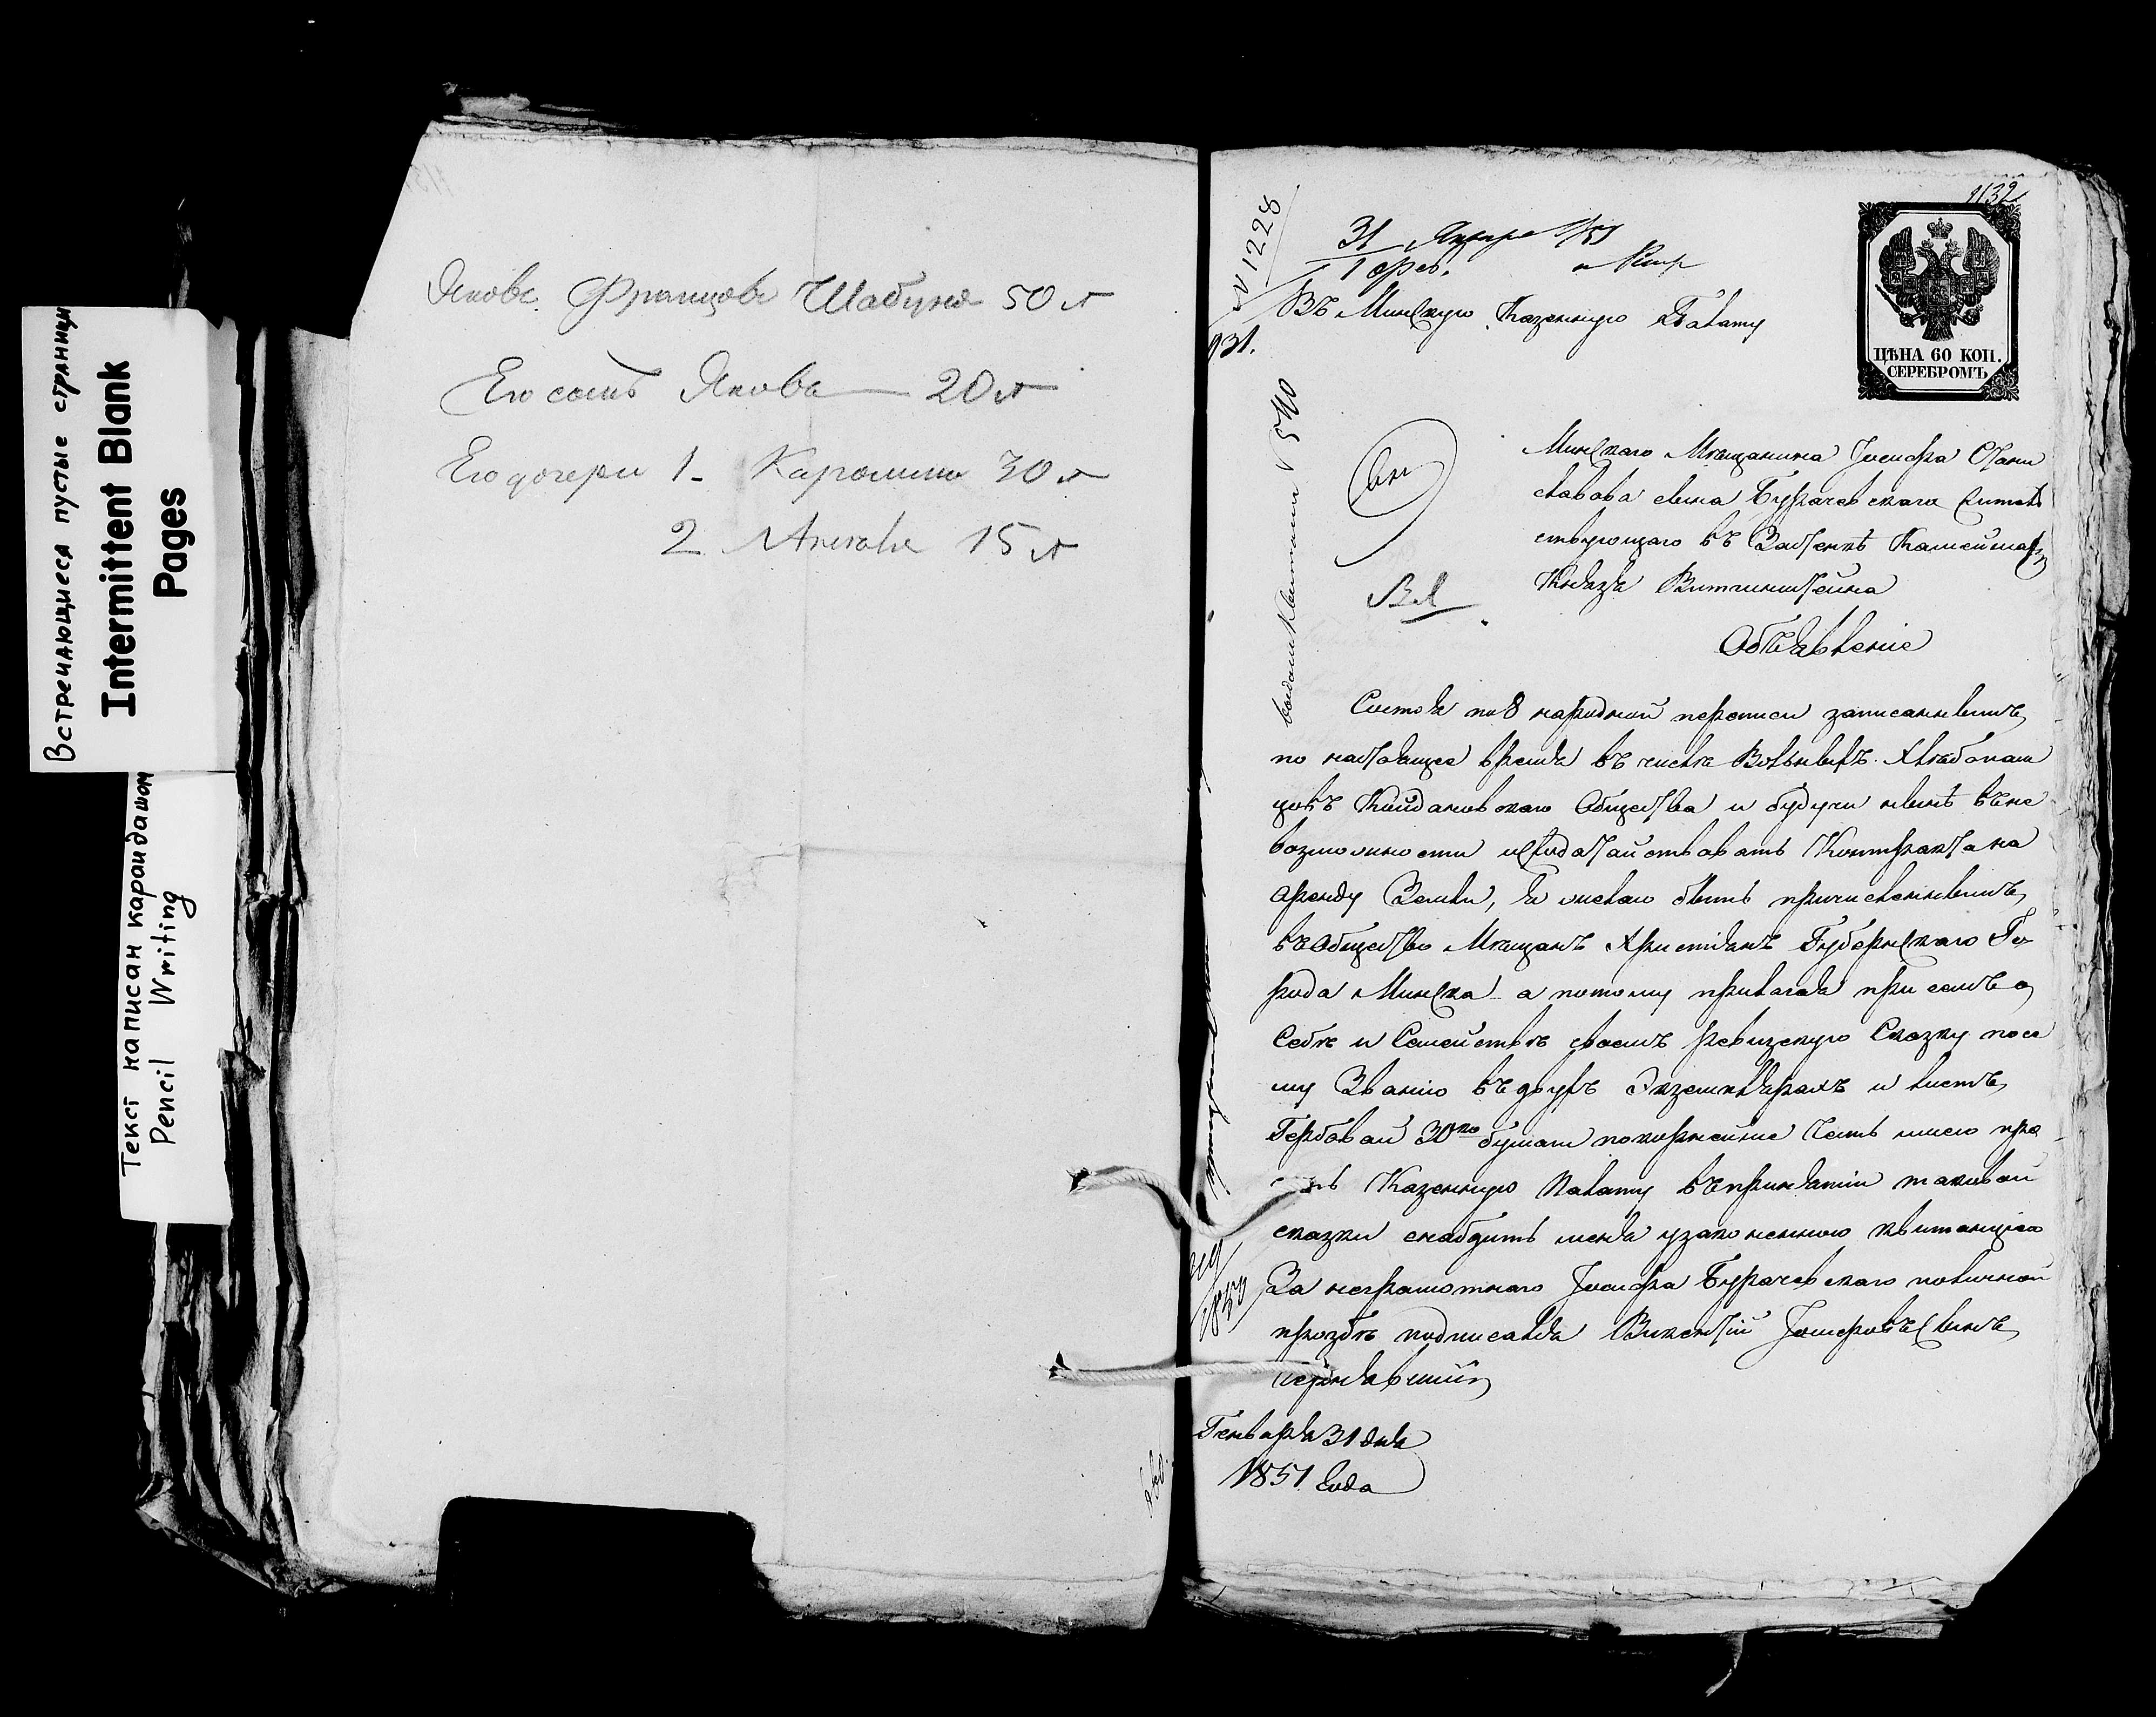 Встречающиеся пустые страницы
Intermittent Blank
Pages
Текст написан карандашом
Pencil Writing
Яковъ Францовъ Шабуня 50 л
Его сынъ Яковъ — 20 л
Его дочери 1 - Каролина 30 л
2 15 л
1132
N 1228
31 Января 1851
1 февр.
Въ Минскую Казенную Палату
931.
ЦѢНА 60 КОП.
СЕРЕБРОМЪ
Минскаго Мѣщанина Іосифа Стани
славова сына Бурачевскаго жител
ствующаго въ Застенкѣ
Князя Витгинштейна
Объявленіе
Состоя по 8 народной переписи записаннымъ
по настоящее время въ числѣ Вольныхъ Хлебопаш
цовъ Койдановскаго Общества и будучи нынѣ въ не
возможности исходатайствовать Контракта на
аренду Земли, я желаю быть причисленнымъ
въ Общество Мѣщанъ Христіянъ Губернскаго Го-
рода Минска а потому прилагая при семъ о
Себѣ и Семействѣ своемъ ревизскую Сказку по се
му Званію въ двухъ Экземплярахъ и листъ
Гербовой 30ко бумаги покорнейше Честь имею про
сить Казенную Палату въ принятіи таковой
сказки снабдить меня узаконенною квитанціею
За неграмотнаго Іосифа Бурачевскаго по личной
прозбѣ подписался Викентій Іосифовъ Сынъ
Генваря 31 дня
1851 Года